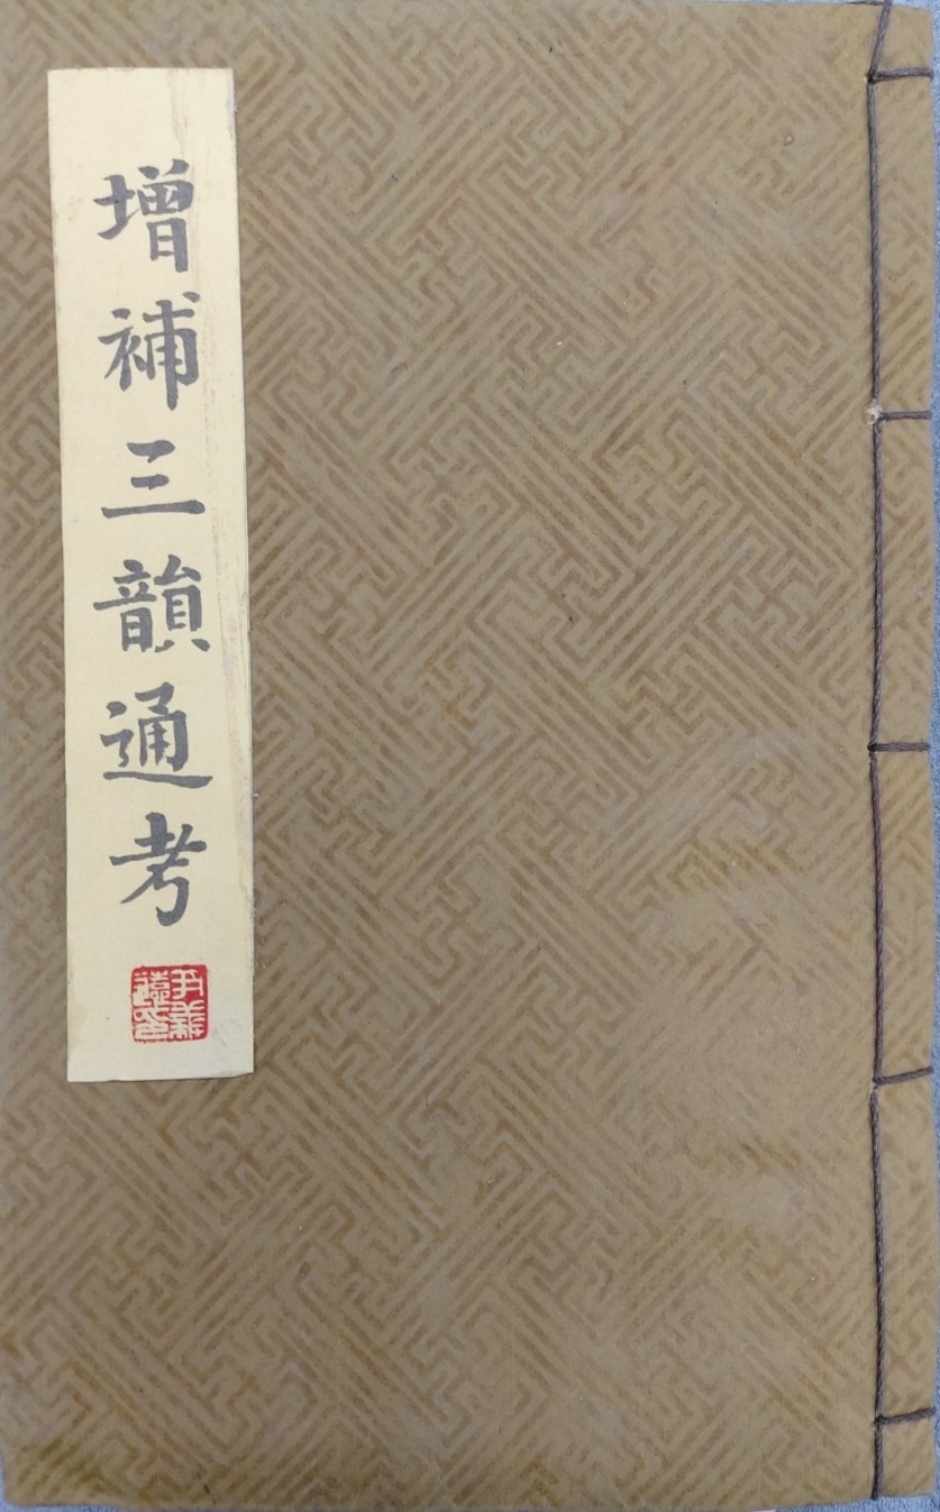 增補三韻通考